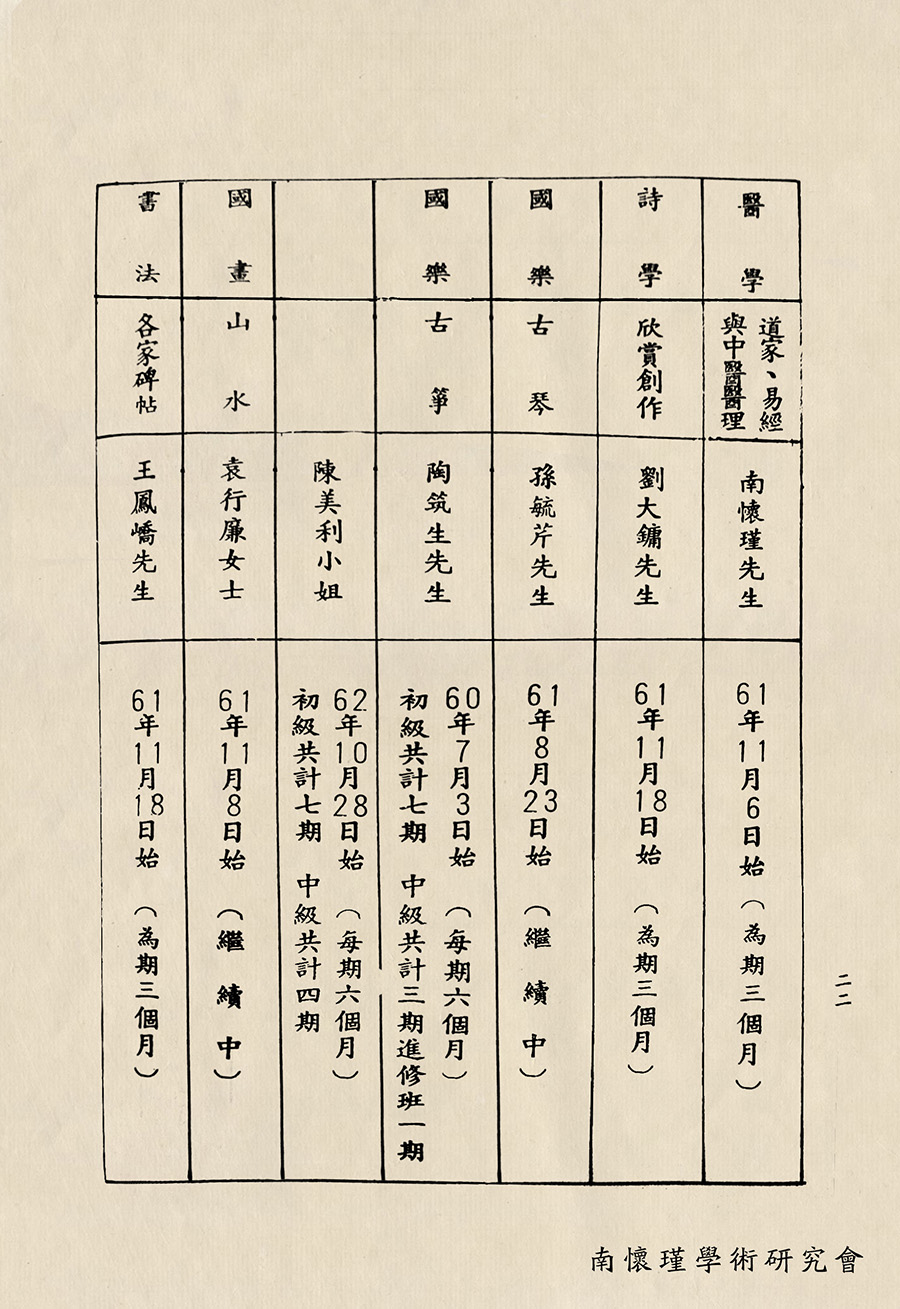 醫學
道家、易經
與中醫醫理
南懷瑾先生
61年11月6日始(為期三個月)
詩學
欣賞創作
劉大鏞先生
61年11月18日始(為期三個月)
國樂
古琴
孫毓芹先生
61年8月23日始(繼續中)
國樂
古箏
陶筑生先生
60年7月3日始(每期六個月)
初級共計七期 中級共計三期進修班一期
陳美利小姐
62年10月28日始(每期六個月)
初級共計七期 中級共計四期
國畫
山水
袁行廉女士
61年11月8日始(繼續中)
書法
各家碑帖
王鳳嶠先生
61年11月18日始(為期三個月)
二二
南懷瑾學術研究會